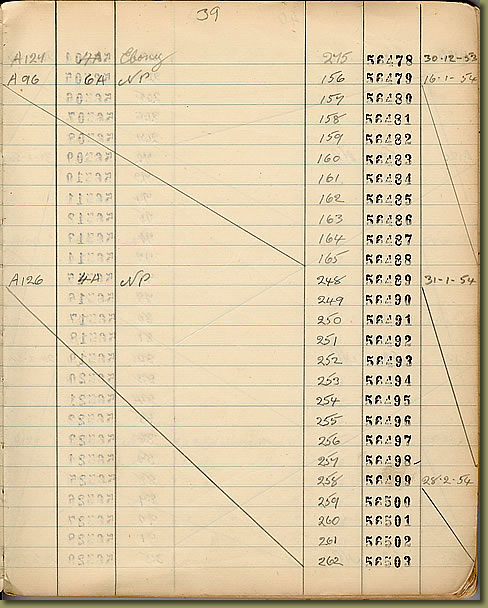 39
A127 4A Ebony 275 56478 30-12-53
A96 6A NP 156 56479 16-1-54
157 56480
158 56481
159 56482
160 56483
161 56484
162 56485
163 56486
164 56487
165 56488
A126 4A NP 248 56489 31-1-54
249 56490
250 56491
251 56492
252 56493
253 56494
254 56495
255 56496
256 56497
257 56498
258 56499 28-2-54
259 56500
260 56501
261 56502
262 56503